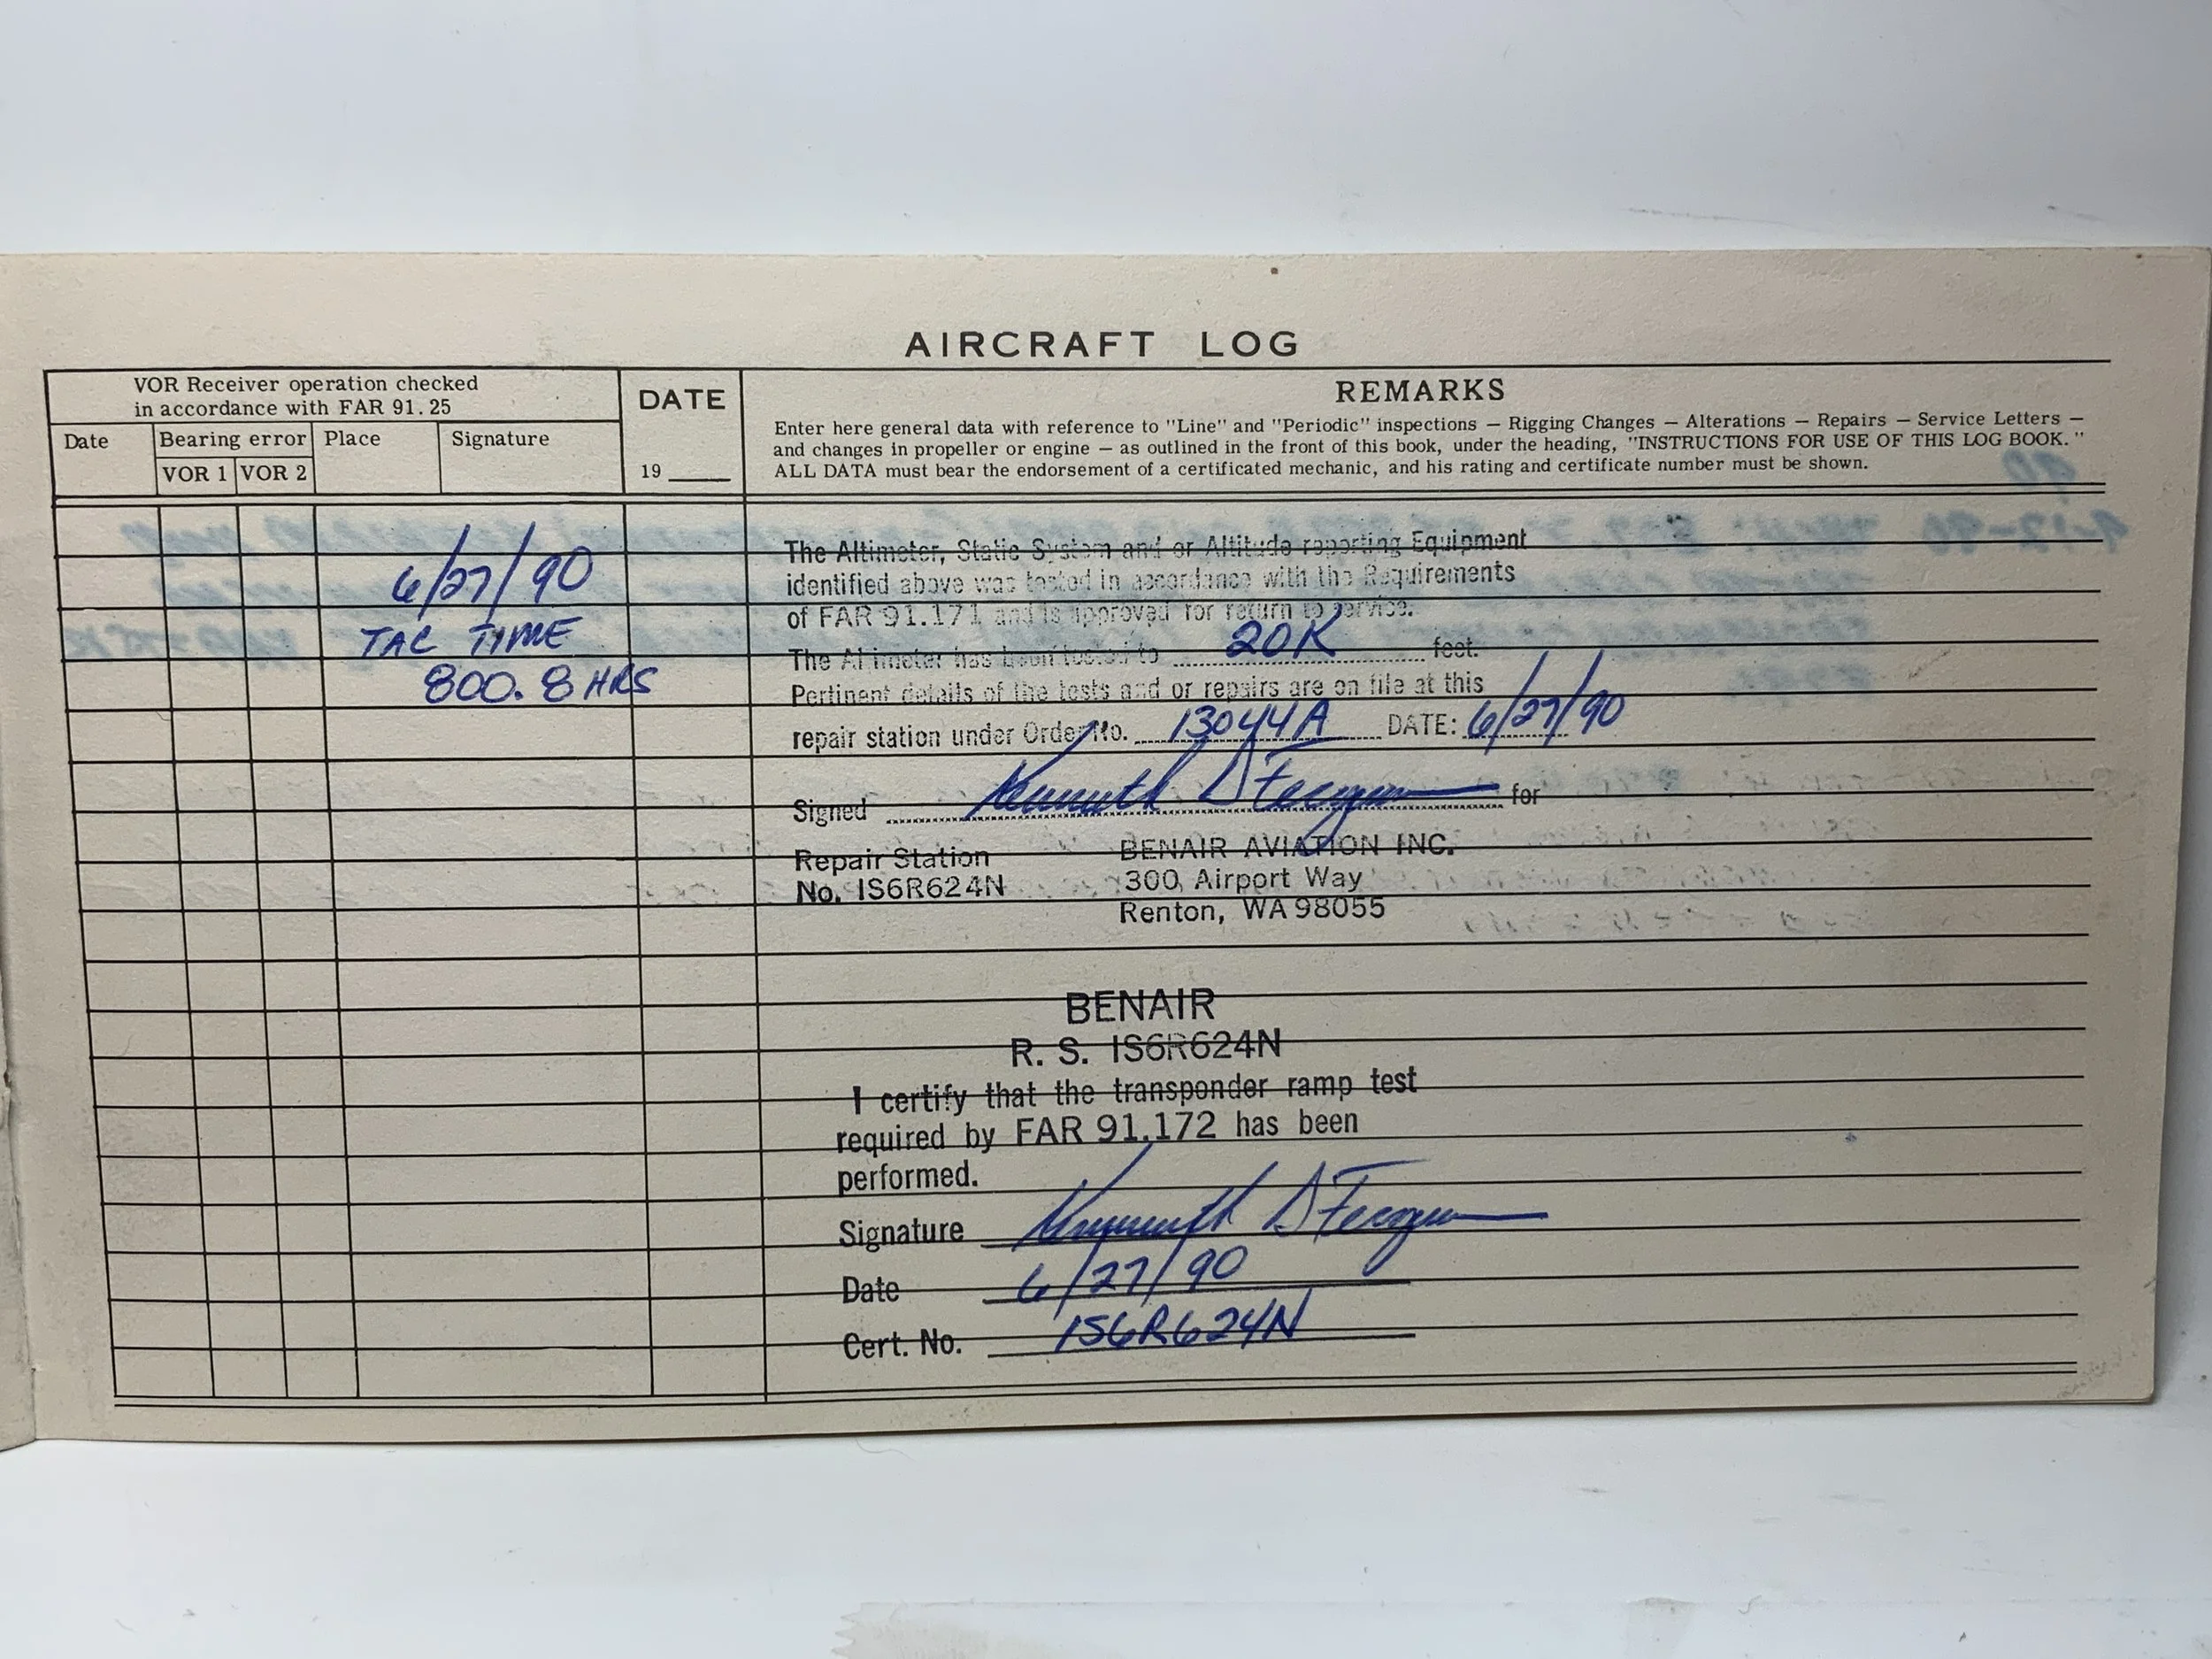 AIRCRAFT LOG
VOR Receiver operation checked
in accordance with FAR 91.25
Date
Bearing error
VOR 1
VOR 2
Place
Signature
DATE
19
REMARKS
Enter here general data with reference to "Line" and "Periodic" inspections — Rigging Changes — Alterations — Repairs — Service Letters —
and changes in propeller or engine — as outlined in the front of this book, under the heading, "INSTRUCTIONS FOR USE OF THIS LOG BOOK."
ALL DATA must bear the endorsement of a certificated mechanic, and his rating and certificate number must be shown.
6/27/90
TAC TIME
800.8 HRS
The Altimeter, Static System and or Altitude reporting Equipment
identified above was tested in accordance with the Requirements
of FAR 91.171 and is approved for return to service.
The Altimeter has been tested to 20K feet.
Pertinent details of the tests and or repairs are on file at this
repair station under Order No. 13044A DATE: 6/27/90
Signed Kenneth D Ferguson for
Repair Station
No. IS6R624N
BENAIR AVIATION INC.
300 Airport Way
Renton, WA 98055
BENAIR
R. S. IS6R624N
I certify that the transponder ramp test
required by FAR 91.172 has been
performed.
Signature Kenneth D Ferguson
Date 6/27/90
Cert. No. IS6R624N